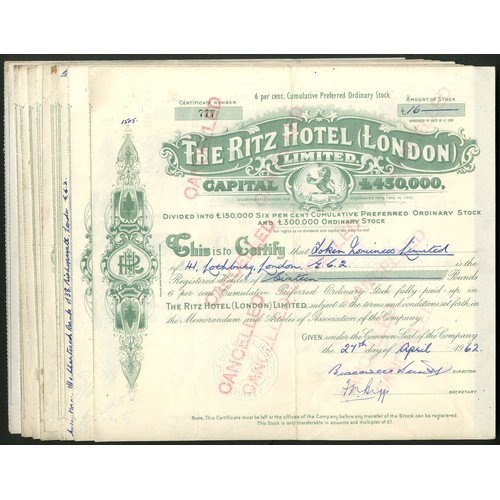 6 per cent. Cumulative Preferred Ordinary Stock
CERTIFICATE NUMBER
777
AMOUNT OF STOCK
£16 —
1505.
THE RITZ HOTEL (LONDON)
LIMITED.
CAPITAL £450,000,
DIVIDED INTO £150,000 SIX PER CENT CUMULATIVE PREFERRED ORDINARY STOCK
AND £300,000 ORDINARY STOCK
This is to Certify that Token Nominees Limited
of 41, Lothbury, London, E.C.2
is the Registered Holder of Sixteen Pounds
6 per cent Cumulative Preferred Ordinary Stock fully paid-up in
THE RITZ HOTEL (LONDON) LIMITED, subject to the terms and conditions set forth in
the Memorandum and Articles of Association of the Company.
GIVEN under the Common Seal of the Company
the 27th day of April 1962
DIRECTOR
SECRETARY
Note. This Certificate must be left at the offices of the Company before any transfer of the Stock can be registered.
This Stock is only transferable in amounts and multiples of £1.
CANCELLED
CANCELLED
CANCELLED
CANCELLED